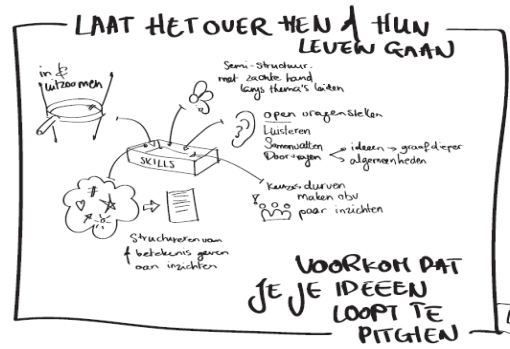 LAAT HET OVER HEN & HUN
LEVEN GAAN
in &
uitzoomen
Semi-structuur.
met zachte hand
langs thema's leiden
open vragen stellen
Luisteren
Samenvatten
Doorvragen
ideeën → graaf dieper
algemeenheden
SKILLS
keuzes durven
maken obv
paar inzichten
Structureren van
& betekenis geven
aan inzichten
VOORKOM DAT
JE JE IDEEEN
LOOPT TE
PITCHEN